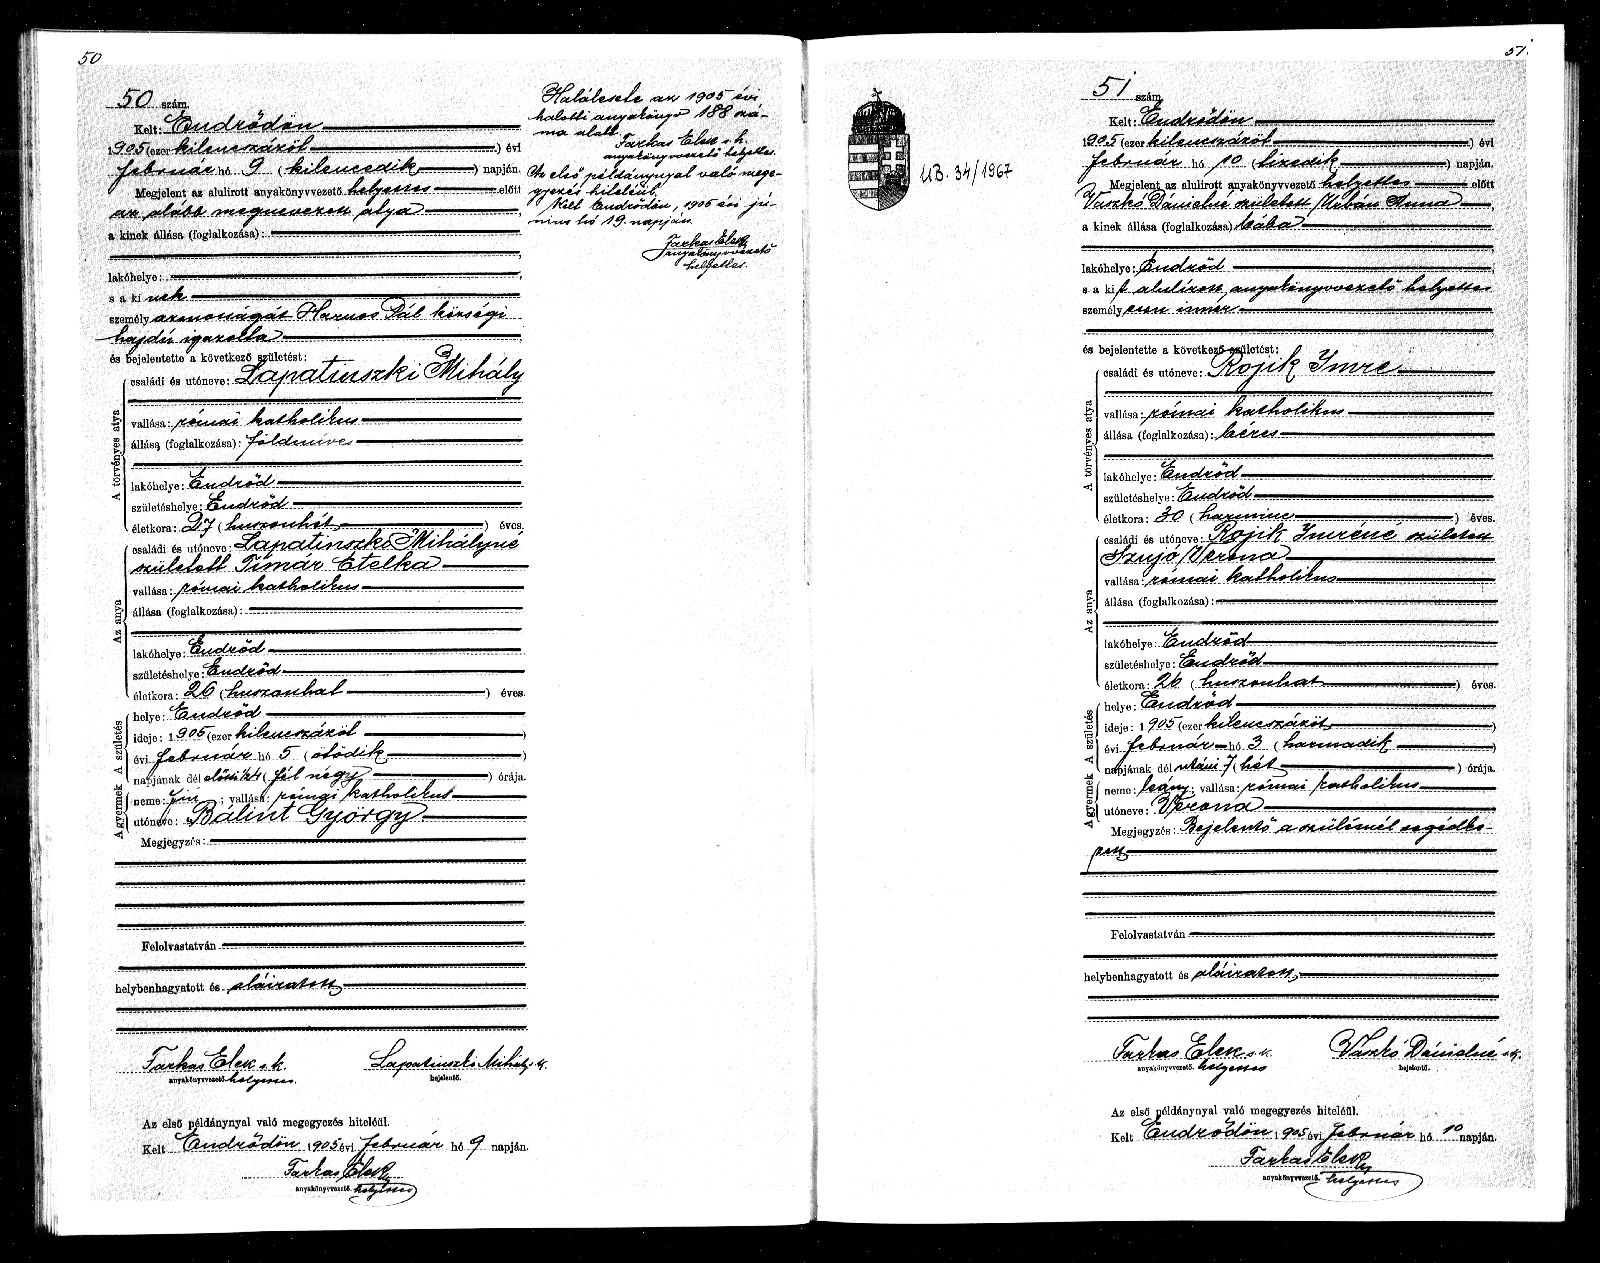 50
50 szám.
Kelt: Endrődön
1905 (ezer kilenczszázöt) évi
február hó 9 (kilenczedik) napján.
Megjelent az alulirott anyakönyvvezető helyettes előtt
az alább megnevezett atya,
a kinek állása (foglalkozása):
lakóhelye:
s a ki nek
személy azonosságát Harnos Pál községi
hajdú igazolta
és bejelentette a következő születést:
A törvényes atya
családi és utóneve: Lapatinszki Mihály
vallása: római katholikus
állása (foglalkozása): földmíves
lakóhelye: Endrőd
születéshelye: Endrőd
életkora: 27 (huszonhét) éves.
Az anya
családi és utóneve: Lapatinszki Mihályné
született Tímár Etelka
vallása: római katholikus
állása (foglalkozása):
lakóhelye: Endrőd
születéshelye: Endrőd
életkora: 26 (huszonhat) éves.
A születés
helye: Endrőd
ideje: 1905 (ezer kilenczszázöt)
évi február hó 5 (ötödik)
napjának dél előtti 1/24 (fél négy) órája.
A gyermek
neme: fiú; vallása: római katholikus
utóneve: Bálint György
Megjegyzés:
Felolvastatván
helybenhagyatott és aláíratott
Farkas Elek s.k.
anyakönyvvezető helyettes.
Lapatinszki Mihály s.k.
bejelentő.
Az első példánynyal való megegyezés hiteléül.
Kelt Endrődön 1905 évi február hó 9 napján.
Farkas Elek
anyakönyvvezető helyettes
Halálesete az 1905 évi
halotti anyakönyv 188 szá-
ma alatt.
Farkas Elek s.k.
anyakönyvvezető helyettes.
Az első példánynyal való mege-
gyezés hiteléül.
Kelt Endrődön, 1905 évi jú-
nius hó 19. napján.
Farkas Elek
anyakönyvvezető
helyettes.
51.
UB. 34/1967
51 szám.
Kelt: Endrődön
1905 (ezer kilenczszázöt) évi
február hó 10 (tizedik) napján.
Megjelent az alulirott anyakönyvvezető helyettes előtt
Vaszkó Dánielné született Urbán Anna,
a kinek állása (foglalkozása) bába
lakóhelye: Endrőd
s a kit alulírott anyakönyvvezető helyettes
személyesen ismer
és bejelentette a következő születést:
A törvényes atya
családi és utóneve: Rojik Imre
vallása: római katholikus
állása (foglalkozása): béres
lakóhelye: Endrőd
születéshelye: Endrőd
életkora: 30 (harmincz) éves.
Az anya
családi és utóneve: Rojik Imréné született
Szujó Verona
vallása: római katholikus
állása (foglalkozása):
lakóhelye: Endrőd
születéshelye: Endrőd
életkora: 26 (huszonhat) éves.
A születés
helye: Endrőd
ideje: 1905 (ezer kilenczszázöt)
évi február hó 3 (harmadik)
napjának dél utáni 7 (hét) órája.
A gyermek
neme: leány; vallása: római katholikus
utóneve: Verona
Megjegyzés: Bejelentő a szülésnél segédke-
zett
Felolvastatván
helybenhagyatott és aláíratott
Farkas Elek s.k.
anyakönyvvezető helyettes
Vaszkó Dánielné s.k.
bejelentő.
Az első példánynyal való megegyezés hiteléül.
Kelt Endrődön 1905 évi február hó 10 napján.
Farkas Elek
anyakönyvvezető helyettes